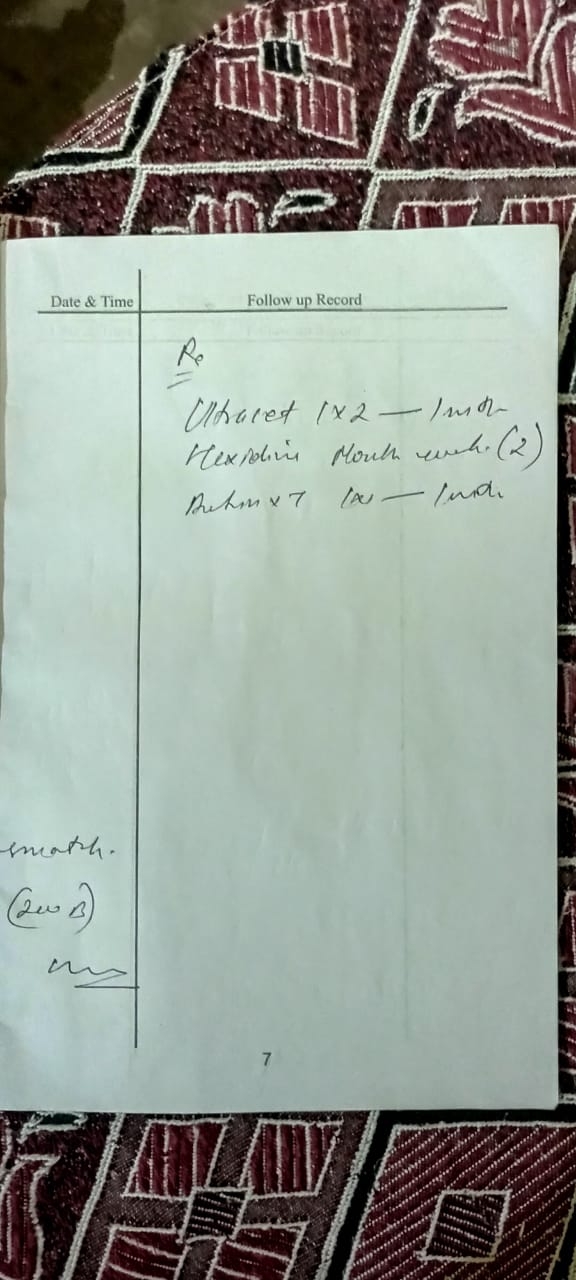 Date & Time Follow up Record
Rx
Ultracet 1x2 — 1 mth
Hexidine Mouth wash (2)
x 7 — 1 mth
smatch.
7